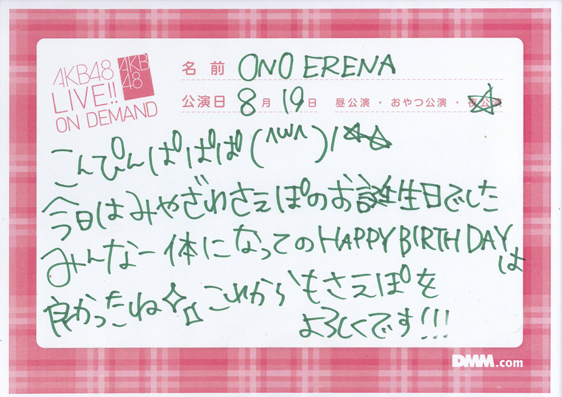 AKB48
AKB
48
LIVE!!
ON DEMAND
名前 ONO ERENA
公演日 8月19日 昼公演・おやつ公演・夜公演
こんぴんぱぱぱ(^w^)/☆☆
今日はみやざわさえぽのお誕生日でした
みんな一体になってのHAPPY BIRTHDAYは
良かったね✧✧これからもさえぽを
よろしくです!!!
DMM.com